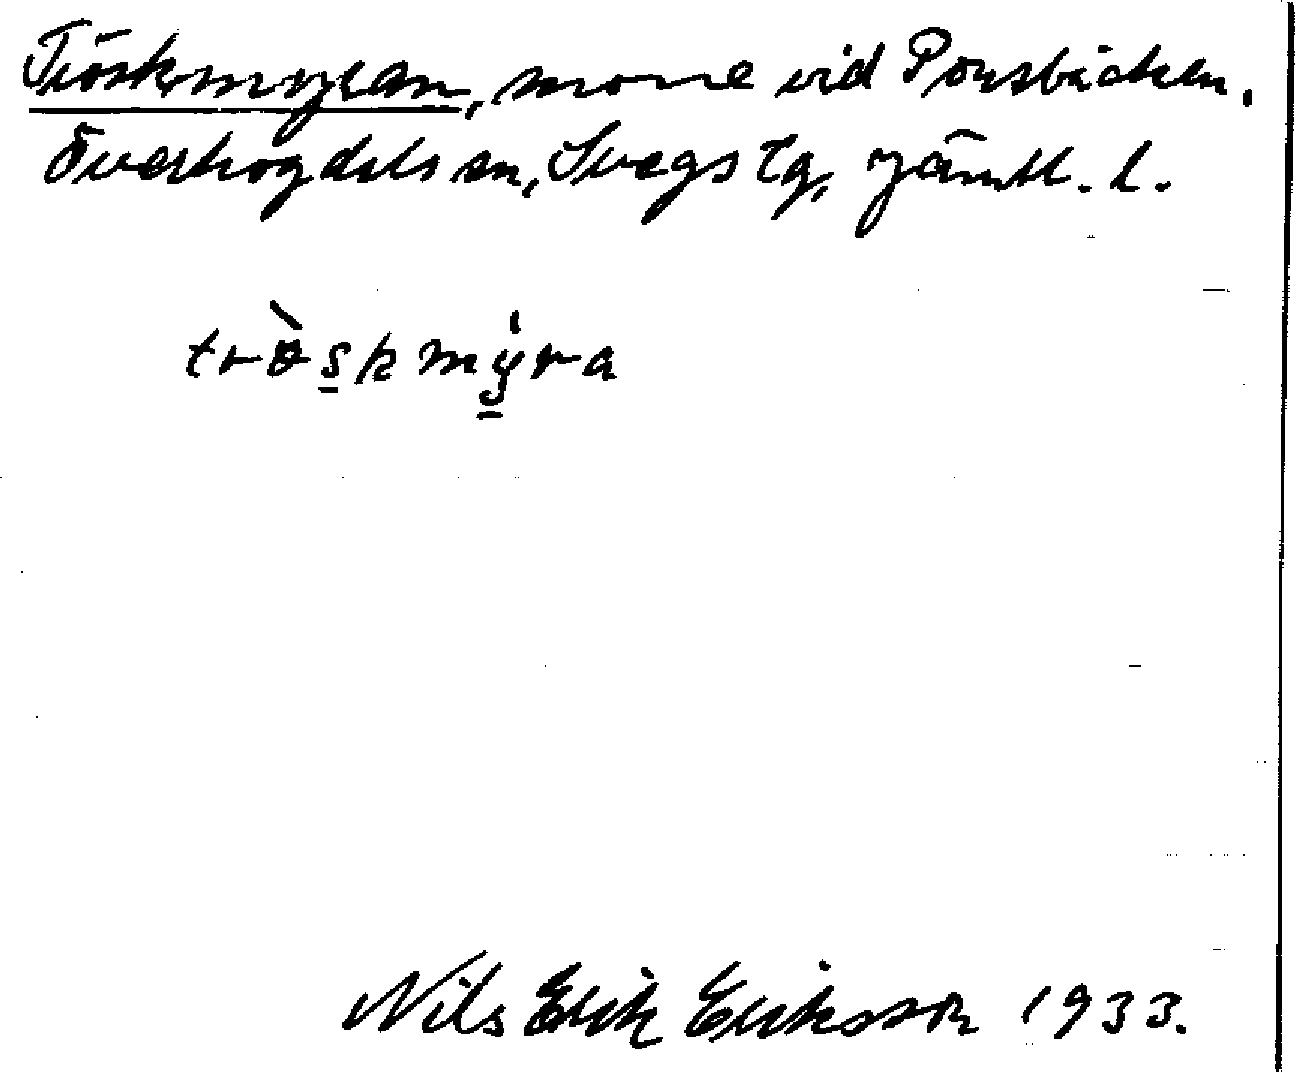 Tröskmyran, myr vid Porsbäcken.
Överhogdals sn, Svegs tg, Jämtl. l.
trɵ̀skmýra
Nils Erik Eriksson 1933.